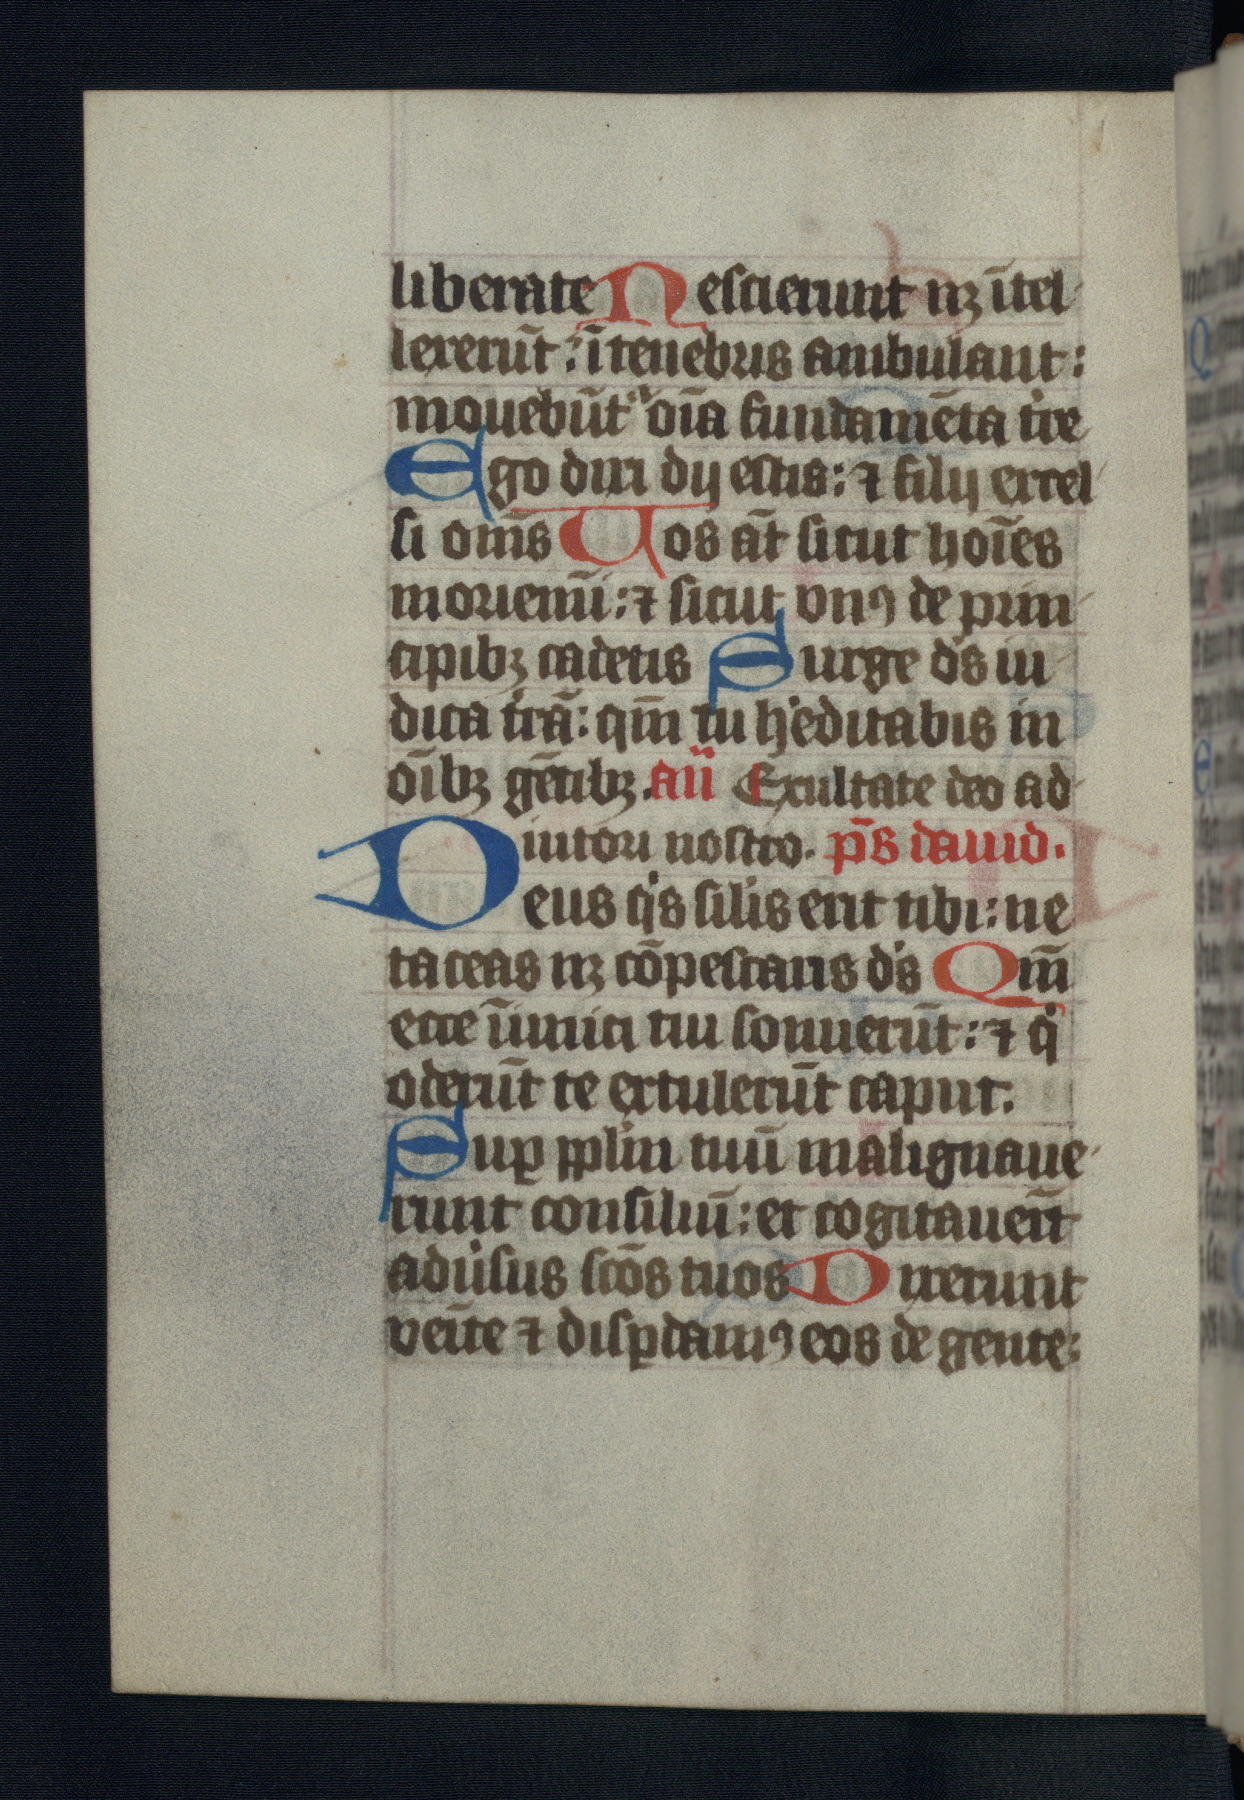 liberate Nescierunt nꝫ ītel
lexerūt: ī tenebris ambulant:
mouebūt᷑ oīa fundamēta tͥre
Ego dixi dij estis: ⁊ filij excel
si om̄s Uos āt sicut hoīes
moriemī: ⁊ sicut vnꝰ de prin
cipibꝫ cadetis Surge ds̄ iu
dica tͥrā: qm̄ tu h̓editabis in
oībꝫ gētibꝫ. añ Exultate deo ad
iutori nostro. ps̄ dauid.
Deus qͥs sil̓is erit tibi: ne
taceas nꝫ cōpescaris ds̄ Qm̄
ecce īimici tui sonuerūt: ⁊ qͥ
oderūt te extulerūt caput.
Suꝑ ppl̄m tuū malignaue
runt consiliū: et cogitauer̄t
aduͥsus scōs tuos Dixerunt
veīte ⁊ disꝑdamꝰ eos de gente: